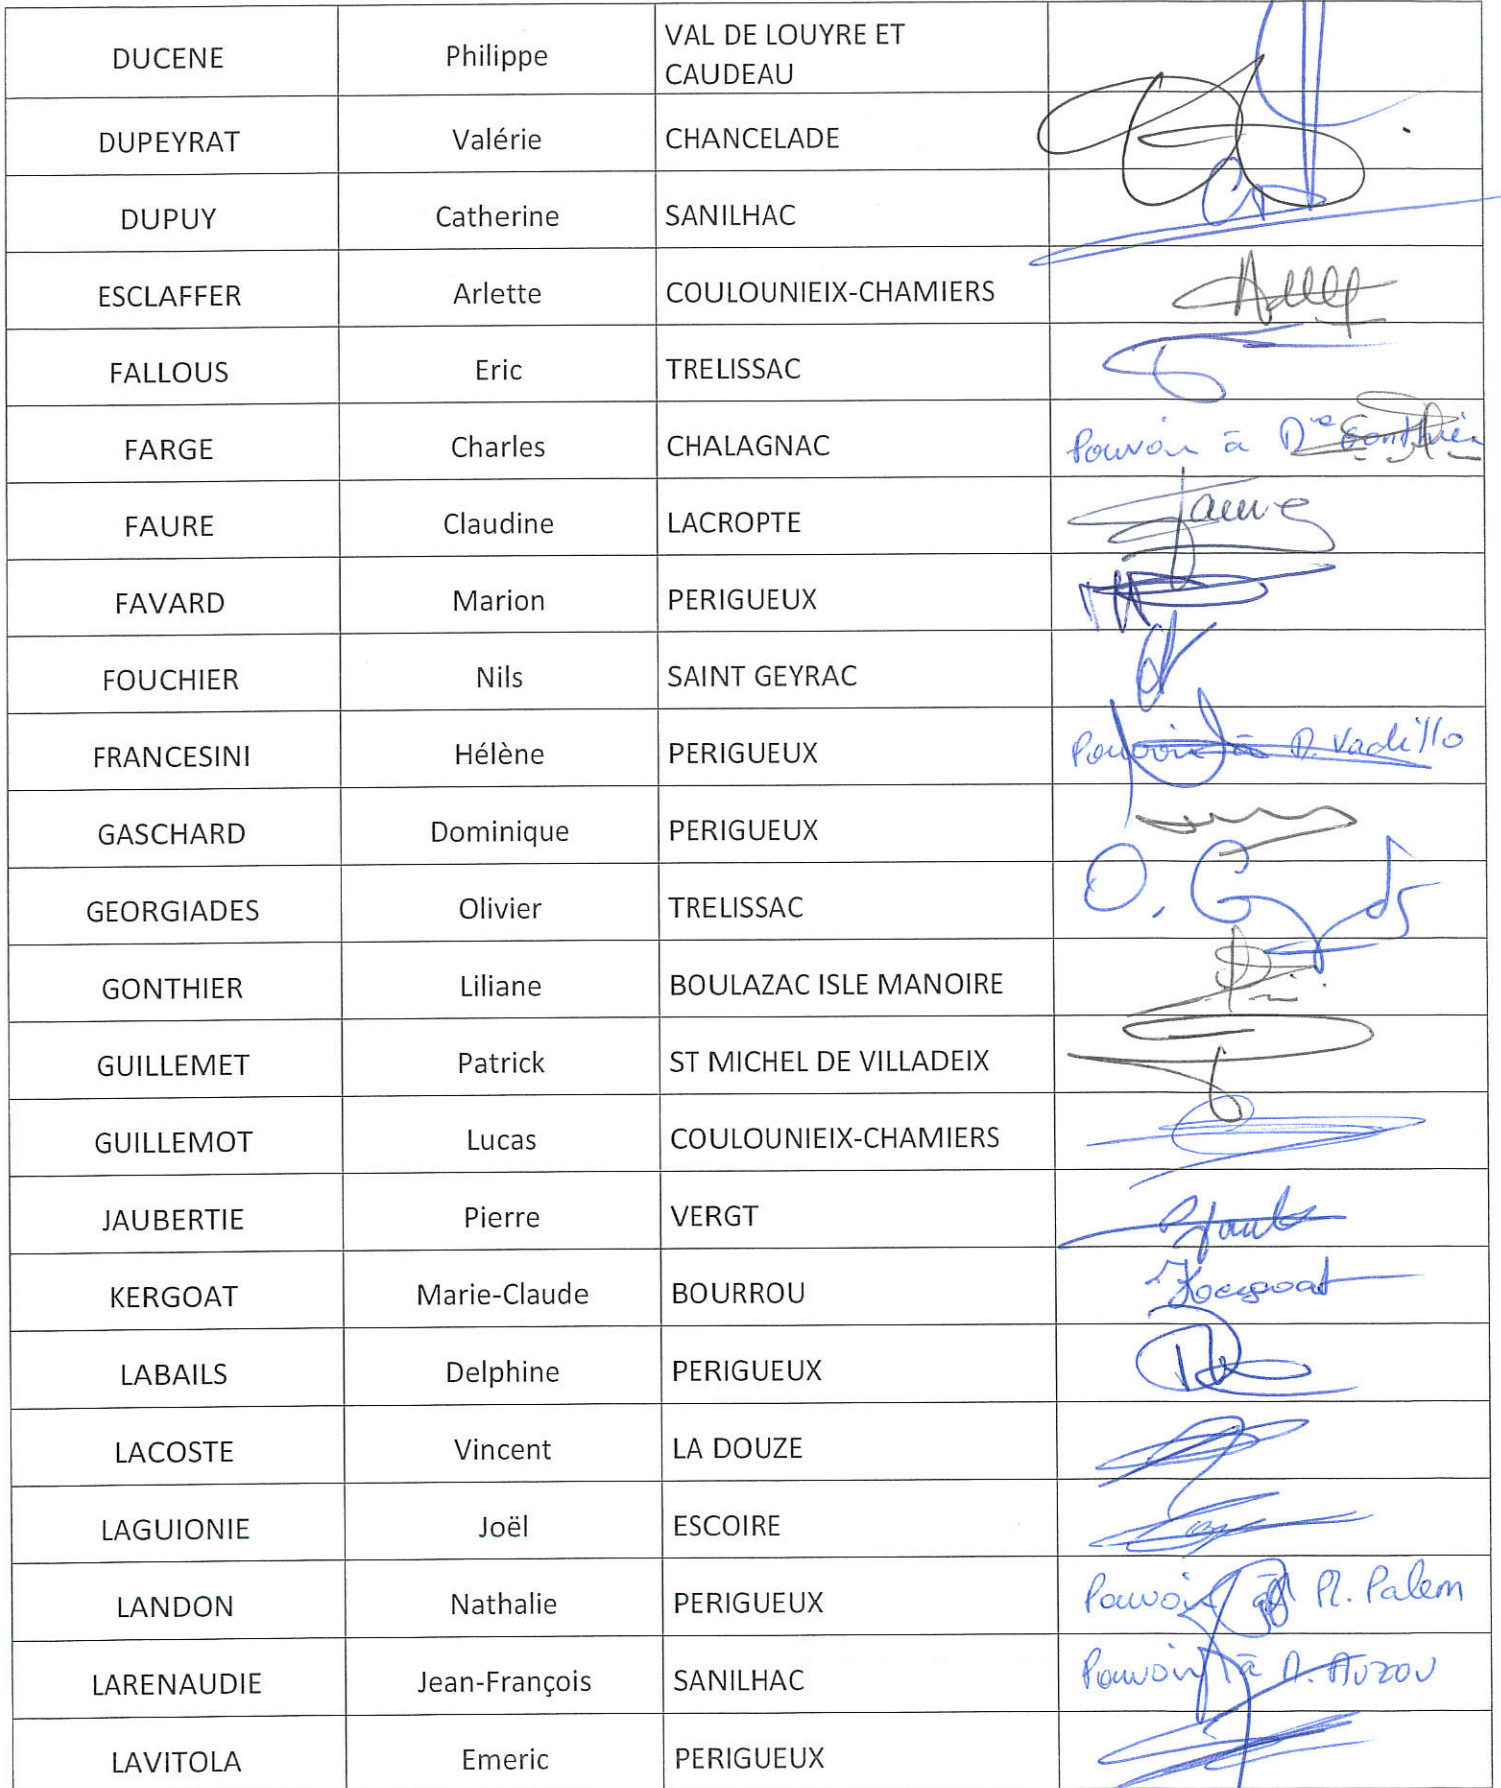 DUCENE Philippe VAL DE LOUYRE ET
CAUDEAU
DUPEYRAT Valérie CHANCELADE
DUPUY Catherine SANILHAC
ESCLAFFER Arlette COULOUNIEIX-CHAMIERS
FALLOUS Eric TRELISSAC
FARGE Charles CHALAGNAC Pouvoir à Mme Gonthier
FAURE Claudine LACROPTE Faure
FAVARD Marion PERIGUEUX
FOUCHIER Nils SAINT GEYRAC
FRANCESINI Hélène PERIGUEUX Pouvoir à M. Vadillo
GASCHARD Dominique PERIGUEUX
GEORGIADES Olivier TRELISSAC
GONTHIER Liliane BOULAZAC ISLE MANOIRE
GUILLEMET Patrick ST MICHEL DE VILLADEIX
GUILLEMOT Lucas COULOUNIEIX-CHAMIERS
JAUBERTIE Pierre VERGT
KERGOAT Marie-Claude BOURROU Kergoat
LABAILS Delphine PERIGUEUX
LACOSTE Vincent LA DOUZE
LAGUIONIE Joël ESCOIRE
LANDON Nathalie PERIGUEUX Pouvoir à M. Palem
LARENAUDIE Jean-François SANILHAC Pouvoir à M. AUZOU
LAVITOLA Emeric PERIGUEUX